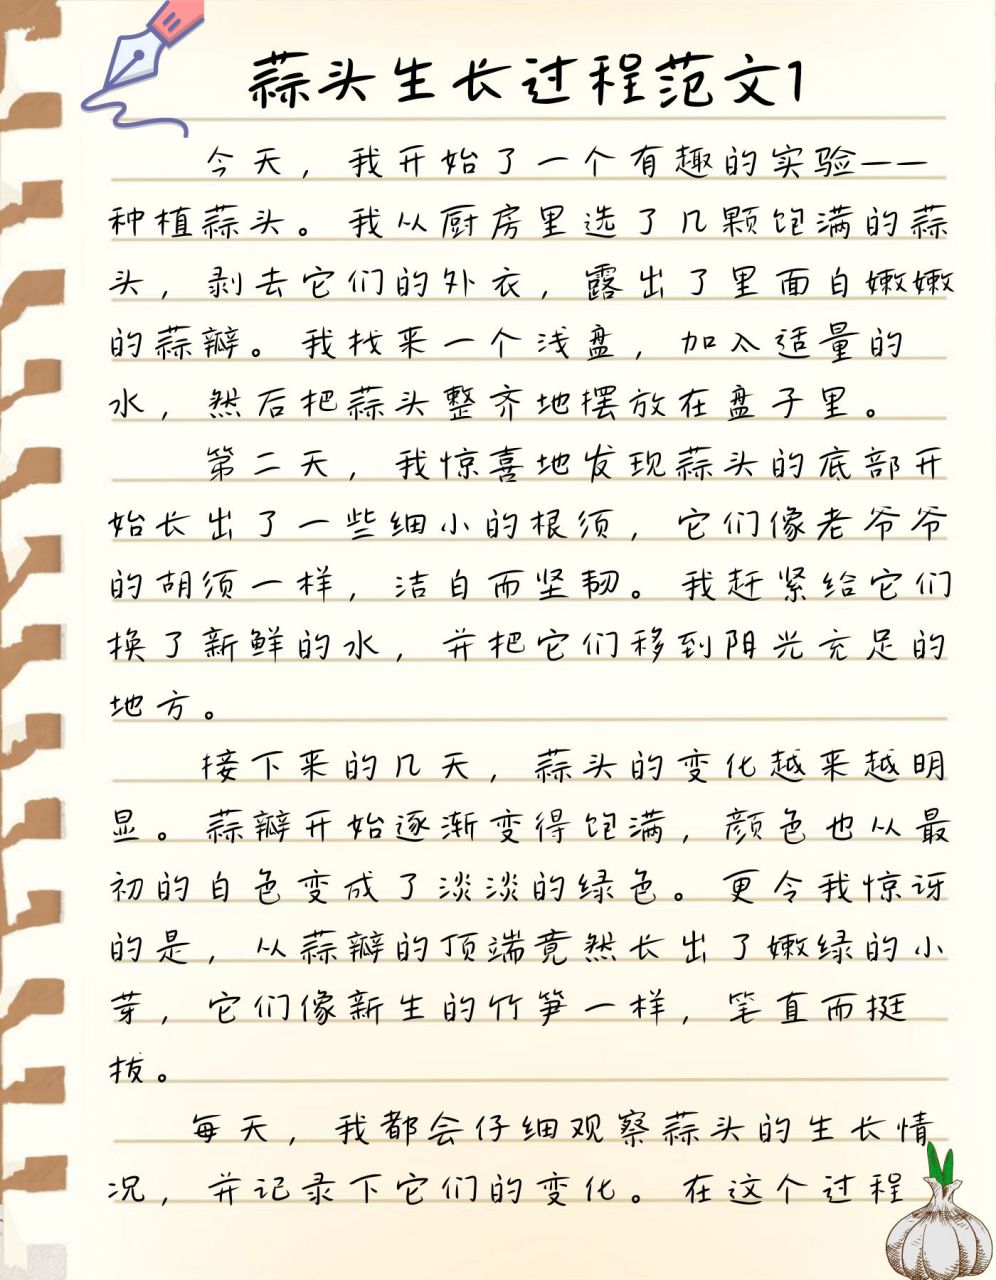 蒜头生长过程范文1
今天，我开始了一个有趣的实验——
种植蒜头。我从厨房里选了几颗饱满的蒜
头，剥去它们的外衣，露出了里面白嫩嫩
的蒜瓣。我找来一个浅盘，加入适量的
水，然后把蒜头整齐地摆放在盘子里。
第二天，我惊喜地发现蒜头的底部开
始长出了一些细小的根须，它们像老爷爷
的胡须一样，洁白而坚韧。我赶紧给它们
换了新鲜的水，并把它们移到阳光充足的
地方。
接下来的几天，蒜头的变化越来越明
显。蒜瓣开始逐渐变得饱满，颜色也从最
初的白色变成了淡淡的绿色。更令我惊讶
的是，从蒜瓣的顶端竟然长出了嫩绿的小
芽，它们像新生的竹笋一样，笔直而挺
拔。
每天，我都会仔细观察蒜头的生长情
况，并记录下它们的变化。在这个过程